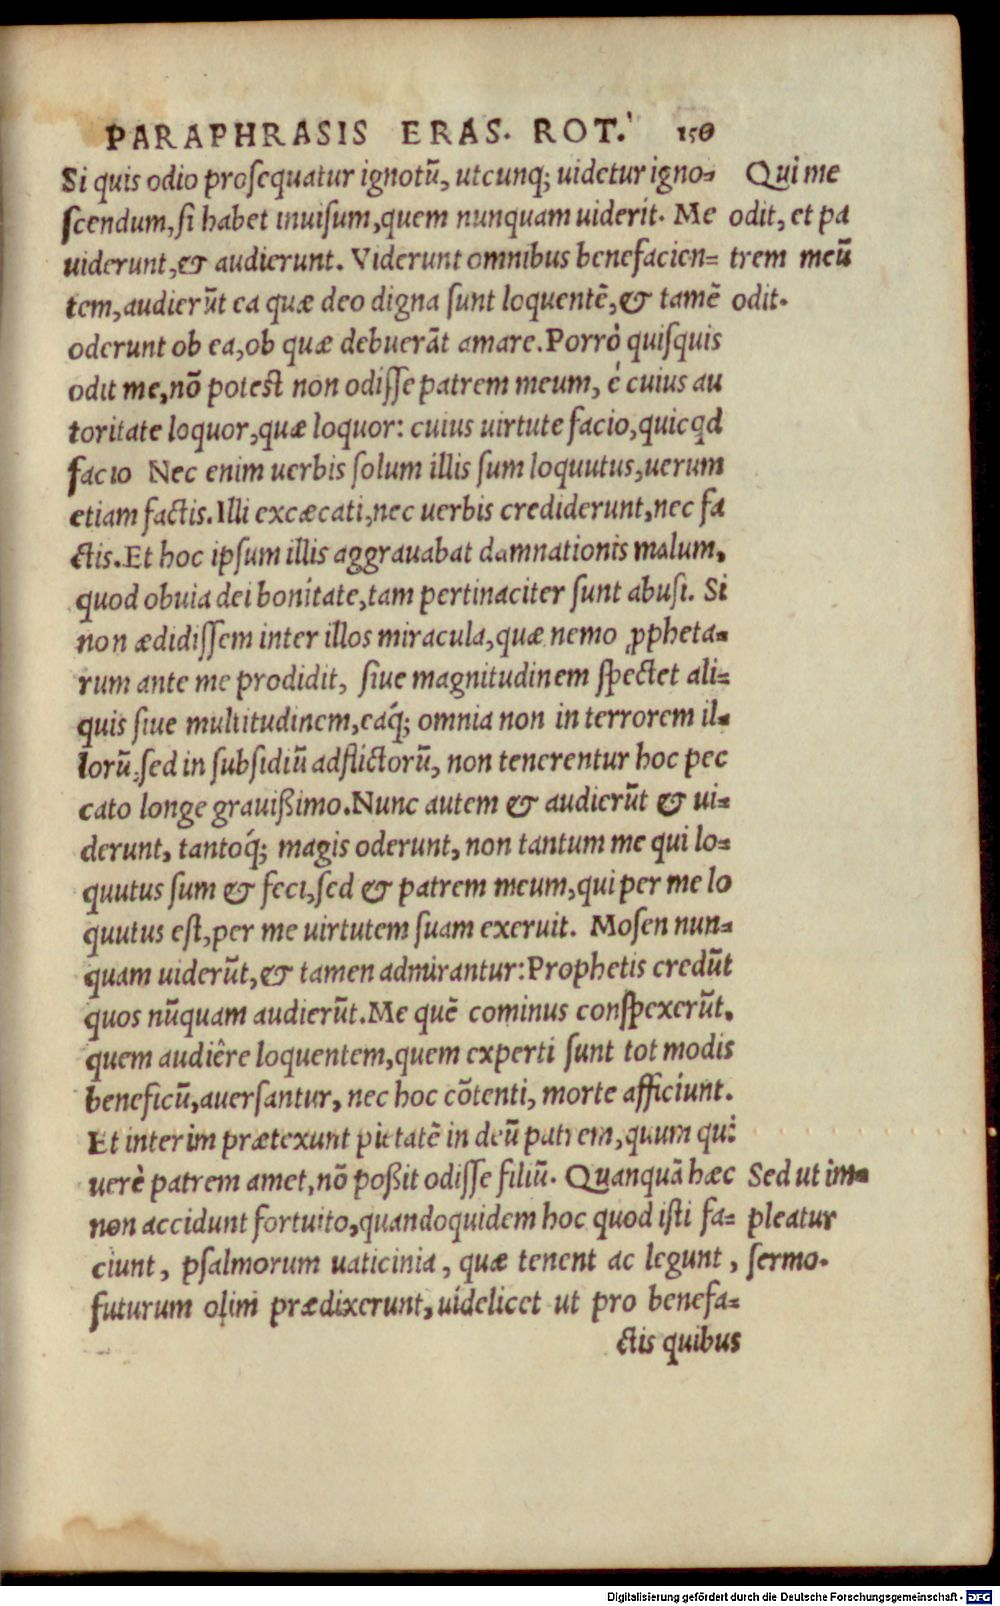 PARAPHRASIS ERAS. ROT. 150
Si quis odio prosequatur ignotū, utcunq; uidetur igno-
scendum, si habet inuisum, quem nunquam uiderit. Me
uiderunt, & audierunt. Viderunt omnibus benefacien=
tem, audierūt ea quæ deo digna sunt loquentē, & tamē
oderunt ob ea, ob quæ debuerāt amare. Porrò quisquis
odit me, nō potest non odisse patrem meum, é cuius au
toritate loquor, quæ loquor: cuius uirtute facio, quicqd
facio Nec enim uerbis solum illis sum loquutus, uerum
etiam factis. Illi excæcati, nec uerbis crediderunt, nec fa
ctis. Et hoc ipsum illis aggrauabat damnationis malum,
quod obuia dei bonitate, tam pertinaciter sunt abusi. Si
non ædidissem inter illos miracula, quæ nemo ꝓpheta-
rum ante me prodidit, siue magnitudinem spectet ali=
quis siue multitudinem, eáq; omnia non in terrorem il-
lorū, sed in subsidiū adflictorū, non tenerentur hoc pec
cato longe grauißimo. Nunc autem & audierūt & ui=
derunt, tantóq; magis oderunt, non tantum me qui lo=
quutus sum & feci, sed & patrem meum, qui per me lo
quutus est, per me uirtutem suam exeruit. Mosen nun-
quam uiderūt, & tamen admirantur: Prophetis credūt
quos nūquam audierūt. Me quē cominus conspexerūt,
quem audiêre loquentem, quem experti sunt tot modis
beneficū, auersantur, nec hoc cōtenti, morte afficiunt.
Et interim prætexunt pietatē in deū patrem, quum qui
uerè patrem amet, nō poßit odisse filiū. Quanquā hæc
non accidunt fortuito, quandoquidem hoc quod isti fa=
ciunt, psalmorum uaticinia, quæ tenent ac legunt,
futurum olim prædixerunt, uidelicet ut pro benefa=
ctis quibus
Qui me
odit, et pa
trem meū
odit.
Sed ut im-
pleatur
sermo.
Digitalisierung gefördert durch die Deutsche Forschungsgemeinschaft - DFG